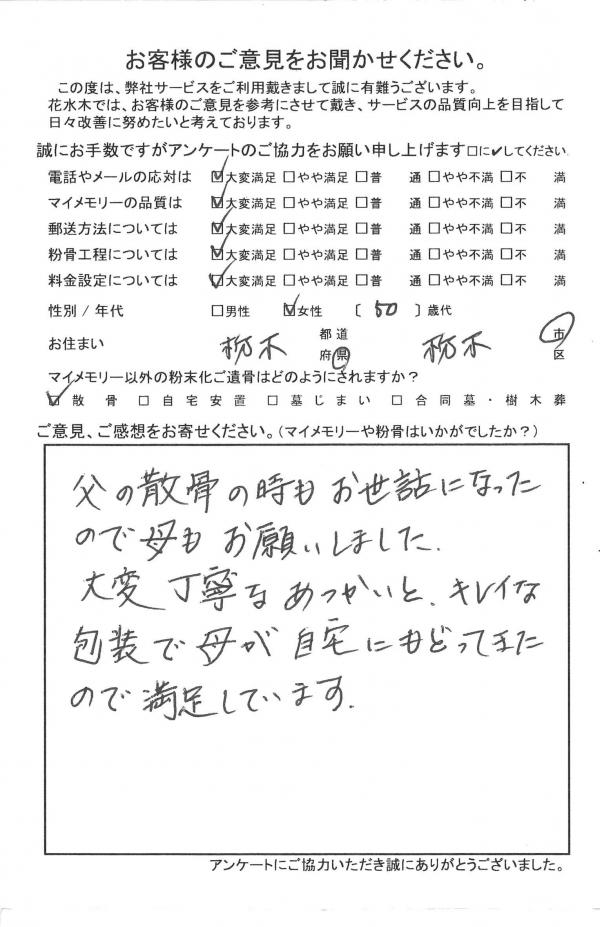 お客様のご意見をお聞かせください。
この度は、弊社サービスをご利用戴きまして誠に有難うございます。
花水木では、お客様のご意見を参考にさせて戴き、サービスの品質向上を目指して
日々改善に努めたいと考えております。
誠にお手数ですがアンケートのご協力をお願い申し上げます□に✓してください.
電話やメールの応対は ☑大変満足 □やや満足 □普 通 □やや不満 □不 満
マイメモリーの品質は ☑大変満足 □やや満足 □普 通 □やや不満 □不 満
郵送方法については ☑大変満足 □やや満足 □普 通 □やや不満 □不 満
粉骨工程については ☑大変満足 □やや満足 □普 通 □やや不満 □不 満
料金設定については ☑大変満足 □やや満足 □普 通 □やや不満 □不 満
性別 / 年代 □男性 ☑女性 〔 50 〕歳代
お住まい 栃木 都道府県 栃木 市区
マイメモリー以外の粉末化ご遺骨はどのようにされますか？
☑ 散 骨 □ 自 宅 安 置 □ 墓 じ ま い □ 合 同 墓 ・ 樹 木 葬
ご意見、ご感想をお寄せください。（マイメモリーや粉骨はいかがでしたか？）
父の散骨の時も お世話になった
ので母も お願いしました.
大変 丁寧な あつかいと、キレイな
包装で 母が 自宅にもどってきた
ので満足しています.
アンケートにご協力いただき誠にありがとうございました。